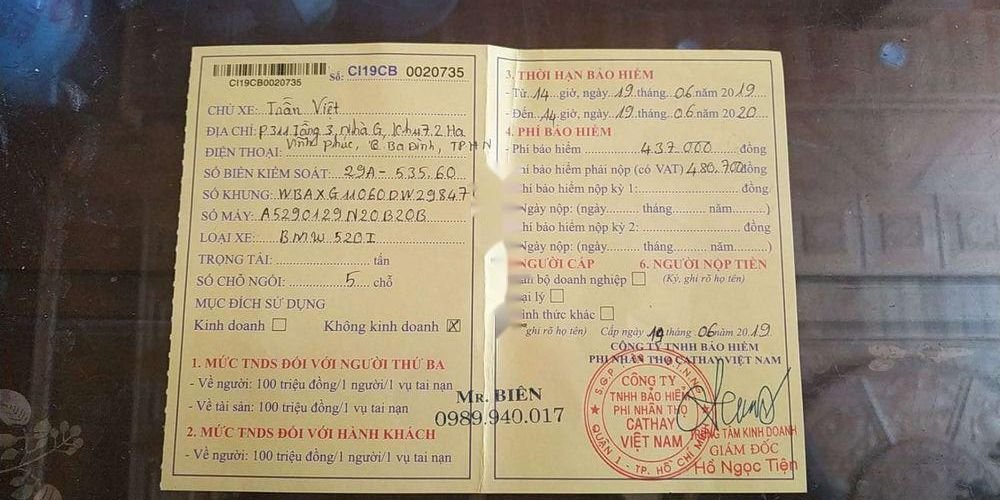 Số: CI19CB 0020735
CI19CB0020735
CHỦ XE: Trần Việt
ĐỊA CHỈ: P311 Tầng 3, Nhà G, 7.2 Ha
Vĩnh Phúc, Q Ba Đình, TP HN
ĐIỆN THOẠI:
SỐ BIỂN KIỂM SOÁT: 29A- 535.60
SỐ KHUNG: WBAXG11060DW29847
SỐ MÁY: A5290129N20B20B
LOẠI XE: BMW 520I
TRỌNG TẢI: tấn
SỐ CHỖ NGỒI: 5 chỗ
MỤC ĐÍCH SỬ DỤNG
Kinh doanh ☐ Không kinh doanh ☒
1. MỨC TNDS ĐỐI VỚI NGƯỜI THỨ BA
- Về người: 100 triệu đồng/1 người/1 vụ tai nạn
- Về tài sản: 100 triệu đồng/1 vụ tai nạn
2. MỨC TNDS ĐỐI VỚI HÀNH KHÁCH
- Về người: 100 triệu đồng/1 người/1 vụ tai nạn
MR. BIÊN
0989.940.017
3. THỜI HẠN BẢO HIỂM
- Từ 14 giờ, ngày 19 tháng 06 năm 2019
- Đến 14 giờ, ngày 19 tháng 06 năm 2020
4. PHÍ BẢO HIỂM
- Phí bảo hiểm 437.000 đồng
hí bảo hiểm phải nộp (có VAT) 480.700 đồng
hí bảo hiểm nộp kỳ 1: đồng
Ngày nộp: (ngày tháng năm )
hí bảo hiểm nộp kỳ 2: đồng
Ngày nộp: (ngày tháng năm )
NGƯỜI CẤP 6. NGƯỜI NỘP TIỀN
n bộ doanh nghiệp ☐ (Ký, ghi rõ họ tên)
ại lý ☐
ình thức khác ☐
ghi rõ họ tên) Cấp ngày 19 tháng 06 năm 2019
CÔNG TY TNHH BẢO HIỂM
PHI NHÂN THỌ CATHAY VIỆT NAM
CÔNG TY
TNHH BẢO HIỂM
PHI NHÂN THỌ
CATHAY
VIỆT NAM
QUẬN 1 - TP. HỒ CHÍ MINH
TRUNG TÂM KINH DOANH
GIÁM ĐỐC
Hồ Ngọc Tiện